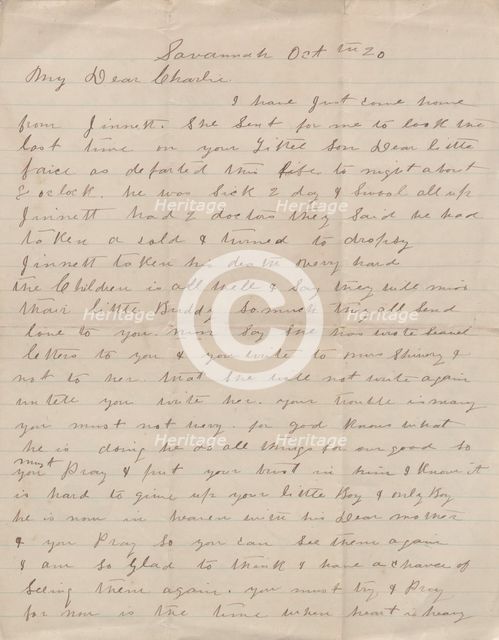 Savannah Oct th 20
My Dear Charlie
I have Just come home
from Jinnett. She Sent for me to look the
last time on your Littel Son Dear little
faice as departed this life to night about
8 oclock. he was Sick 2 day & Swool all up
Jinnett had 2 doctors they Said he had
taken a cold & turned to dropsy
Jinnett taken his death very hard
the Children is all well & Say they will miss
thair little Budde So much they all Send
love to you. Say She has wrote
letters to you & you write to mrs &
not to her. that She will not write again
untele you write her. your trouble is many
you must not wery. for god knows what
he is doing he do all things for our good So
you must Pray & put your trust in him I know it
is hard to give up your little Boy & only Boy
he is now in heaven with his Dear mother
& you Pray So you can See them again
I am So Glad to think I have a chance of
Seeing them again. you must try & Pray
for now is the time when heart is heavy
Heritage
Heritage
Heritage
Heritage
Heritage
Heritage
Heritage
Heritage
C